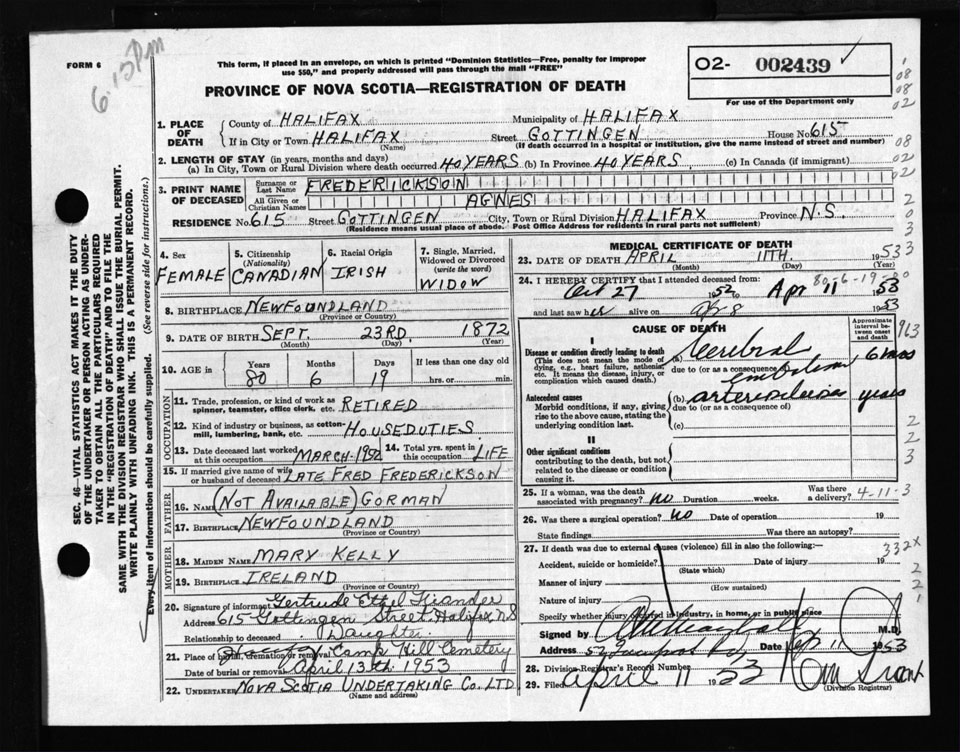 6.15 pm
FORM 6
This form, if placed in an envelope, on which is printed "Dominion Statistics—Free, penalty for improper
use $50," and properly addressed will pass through the mail "FREE"
PROVINCE OF NOVA SCOTIA—REGISTRATION OF DEATH
O2- 002439
For use of the Department only
1. PLACE OF DEATH
County of HALIFAX Municipality of HALIFAX
If in City or Town HALIFAX (Name) Street GOTTINGEN House No. 615
(If death occurred in a hospital or institution, give the name instead of street and number)
2. LENGTH OF STAY (in years, months and days)
(a) In City, Town or Rural Division where death occurred 40 YEARS (b) In Province 40 YEARS (c) In Canada (if immigrant)
3. PRINT NAME OF DECEASED
Surname or Last Name FREDERICKSON
All Given or Christian Names AGNES
RESIDENCE No. 615 Street GOTTINGEN City, Town or Rural Division HALIFAX Province N.S.
(Residence means usual place of abode. Post Office Address for residents in rural parts not sufficient)
4. Sex FEMALE
5. Citizenship (Nationality) CANADIAN
6. Racial Origin IRISH
7. Single, Married, Widowed or Divorced (write the word) WIDOW
8. BIRTHPLACE NEWFOUNDLAND
(Province or Country)
9. DATE OF BIRTH SEPT. 23RD. 1872
(Month) (Day) (Year)
10. AGE in Years 80 Months 6 Days 19 If less than one day old hrs. or min.
OCCUPATION
11. Trade, profession, or kind of work as spinner, teamster, office clerk, etc. RETIRED
12. Kind of industry or business, as cotton-mill, lumbering, bank, etc. HOUSEDUTIES.
13. Date deceased last worked at this occupation MARCH-1952
14. Total yrs. spent in this occupation LIFE
15. If married give name of wife or husband of deceased LATE FRED FREDERICKSON
FATHER
16. NAME (NOT AVAILABLE) GORMAN
17. BIRTHPLACE NEWFOUNDLAND
(Province or Country)
MOTHER
18. MAIDEN NAME MARY KELLY
19. BIRTHPLACE IRELAND
(Province or Country)
20. Signature of informant Gertrude Ethel
Address 615 Gottingen Street Halifax N.S
Relationship to deceased Daughter.
21. Place of burial, cremation or removal Camp Hill Cemetery
Date of burial or removal April 13th 1953
22. UNDERTAKER NOVA SCOTIA UNDERTAKING CO. LTD
(Name and address)
MEDICAL CERTIFICATE OF DEATH
23. DATE OF DEATH APRIL 11TH. 1953
(Month) (Day) (Year)
24. I HEREBY CERTIFY that I attended deceased from:
Oct 27 1952 to Apr 11 1953
and last saw her alive on Apr 8 1953
80-6-19-80
CAUSE OF DEATH
Approximate interval between onset and death
I
Disease or condition directly leading to death
(This does not mean the mode of dying, e.g., heart failure, asthenia, etc. It means the disease, injury, or complication which caused death.)
(a) Cerebral embolism 6 mos
due to (or as a consequence of)
Antecedent causes
Morbid conditions, if any, giving rise to the above cause, stating the underlying condition last.
(b) arteriosclerosis years
due to (or as a consequence of)
(c)
II
Other significant conditions
contributing to the death, but not related to the disease or condition causing it.
25. If a woman, was the death associated with pregnancy? no Duration weeks. Was there a delivery?
4-11-3
26. Was there a surgical operation? no Date of operation 19
State findings Was there an autopsy?
27. If death was due to external causes (violence) fill in also the following:—
Accident, suicide or homicide? Date of injury 19
(State which)
332X
Manner of injury
(How sustained)
Nature of injury
Specify whether injury occurred in industry, in home, or in public place
Signed by M.D.
Address Date Apr 11 1953
28. Division Registrar's Record Number
29. Filed April 11 1953
(Division Registrar)
SEC. 46—VITAL STATISTICS ACT MAKES IT THE DUTY
OF THE UNDERTAKER OR PERSON ACTING AS UNDER-
TAKER TO OBTAIN ALL THE PARTICULARS REQUIRED
IN THE "REGISTRATION OF DEATH" AND TO FILE THE
SAME WITH THE DIVISION REGISTRAR WHO SHALL ISSUE THE BURIAL PERMIT.
WRITE PLAINLY WITH UNFADING INK. THIS IS A PERMANENT RECORD.
Every item of information should be carefully supplied. (See reverse side for instructions.)